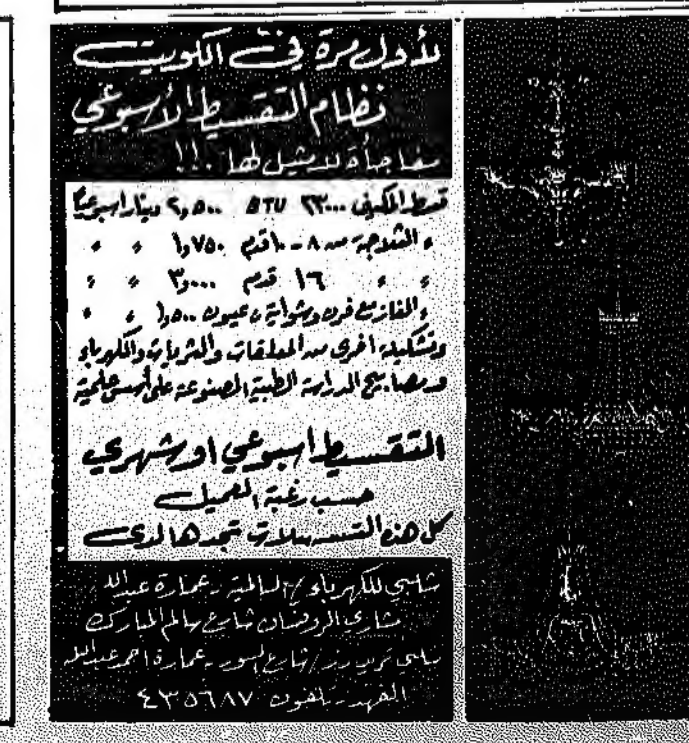 لأول مرة في الكويت
نظام التقسيط الأسبوعي
مفاجأة لا مثيل لها ..!!
قسط المكيف ٢٣٠٠٠ BTU ٢,٥٠٠ دينار اسبوعيا
» الثلاجة من ٨ - ١٠ قدم ١,٧٥٠ » »
» » ١٦ قدم ٣,٠٠٠ » »
» الغاز مع فرن وشواية عيون ١,٥٠٠ » »
وتشكيلة اخرى من المعلقات والثريات والكهرباء
ومصابيح الدراسة الطبية المصنوعة على أسس علمية
التقسيط اسبوعي او شهري
حسب رغبة العميل
كل هذه التسهيلات تجدها لدى
شلبي للكهرباء / السالمية - عمارة عبدالله
شاري الروضان شارع سالم المبارك
شلبي تريدرز / شارع السور - عمارة احمد عبدالله
الفهد - تلفون ٤٣٥٦٨٧